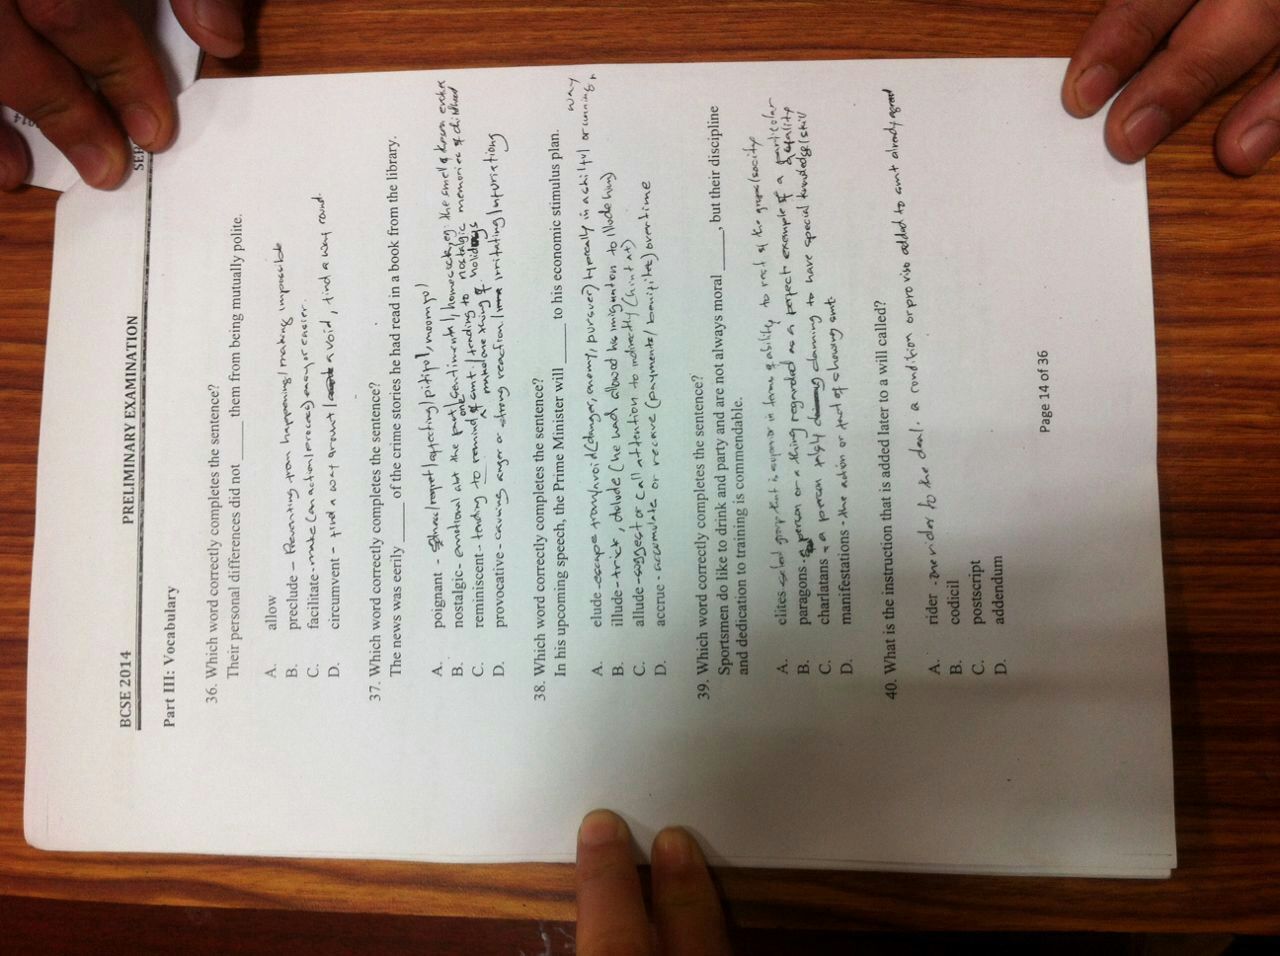 BCSE 2014 PRELIMINARY EXAMINATION SER
2014
Part III: Vocabulary
36. Which word correctly completes the sentence?
Their personal differences did not _____ them from being mutually polite.
A. allow
B. preclude – Preventing from happening/making impossible
C. facilitate - make (an action/process) easy or easier.
D. circumvent - find a way around / avoid, find a way round.
37. Which word correctly completes the sentence?
The news was eerily _____ of the crime stories he had read in a book from the library.
A. poignant - regret/affecting/pitiful,
B. nostalgic - emotional abt the past/sentimental, homesick, eg. the smell of
C. reminiscent - tending to remind of smt. / tending to nostalgic memories of childhood
making one think of holidays
D. provocative - causing anger or strong reaction/ irritating/
38. Which word correctly completes the sentence?
In his upcoming speech, the Prime Minister will _____ to his economic stimulus plan.
A. elude - escape from/avoid (danger, enemy, pursuer) typically in a skilful or cunning way
B. illude - trick, delude (he had allowed his to illude him)
C. allude - suggest or call attention to indirectly (hint at)
D. accrue - accumulate or receive (payments/ ) overtime
39. Which word correctly completes the sentence?
Sportsmen do like to drink and party and are not always moral _____, but their discipline
and dedication to training is commendable.
A. elites - select group that is superior in terms of ability to rest of the group/society
B. paragons - person or a thing regarded as a perfect example of a particular quality
C. charlatans - a person claiming to have special knowledge/skill
D. manifestations - the action or of showing smt.
40. What is the instruction that is added later to a will called?
A. rider - one rider to the deal. a condition or proviso added to smt already agreed
B. codicil
C. postscript
D. addendum
Page 14 of 36